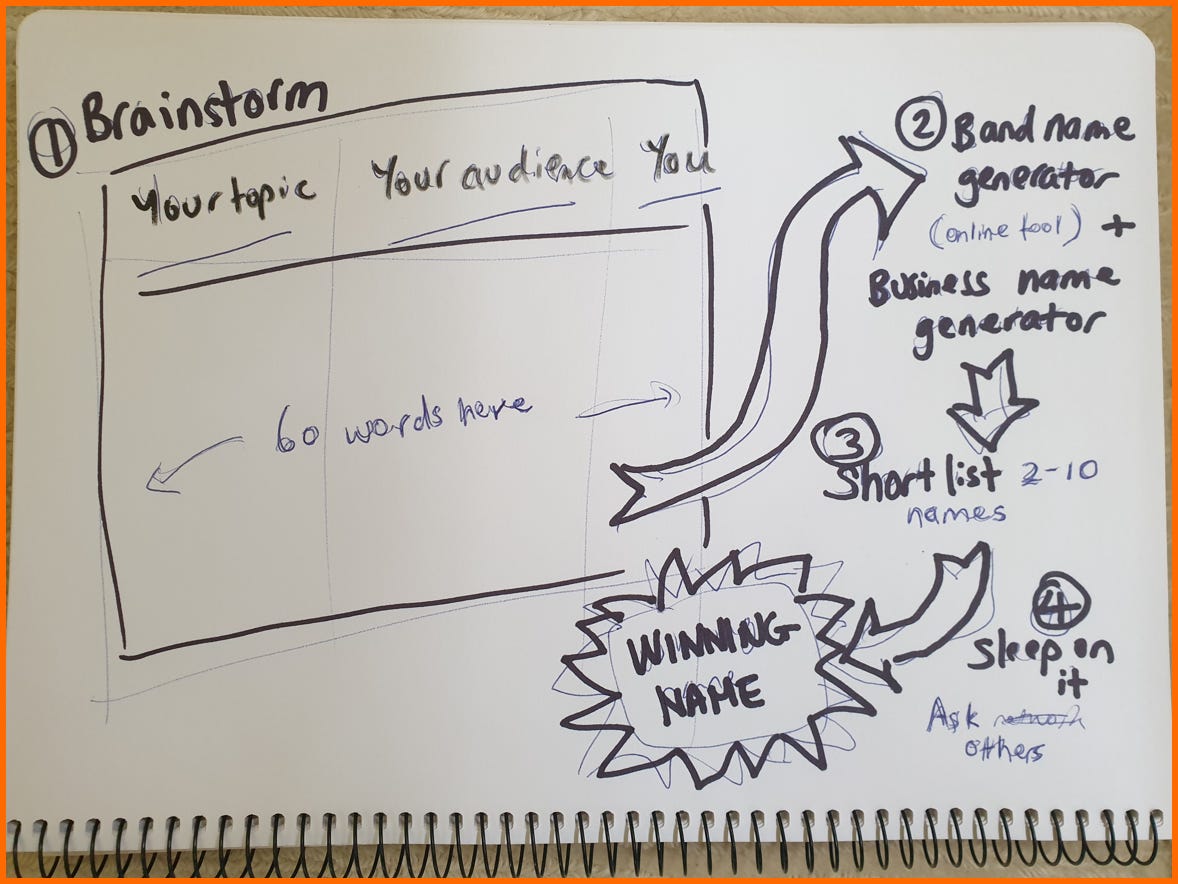 1 Brainstorm
Your topic
Your audience
You
60 words here
2 Band name
generator
(online tool) +
Business name
generator
3
Short list 2-10
names
4
Sleep on
it
Ask
others
WINNING
NAME